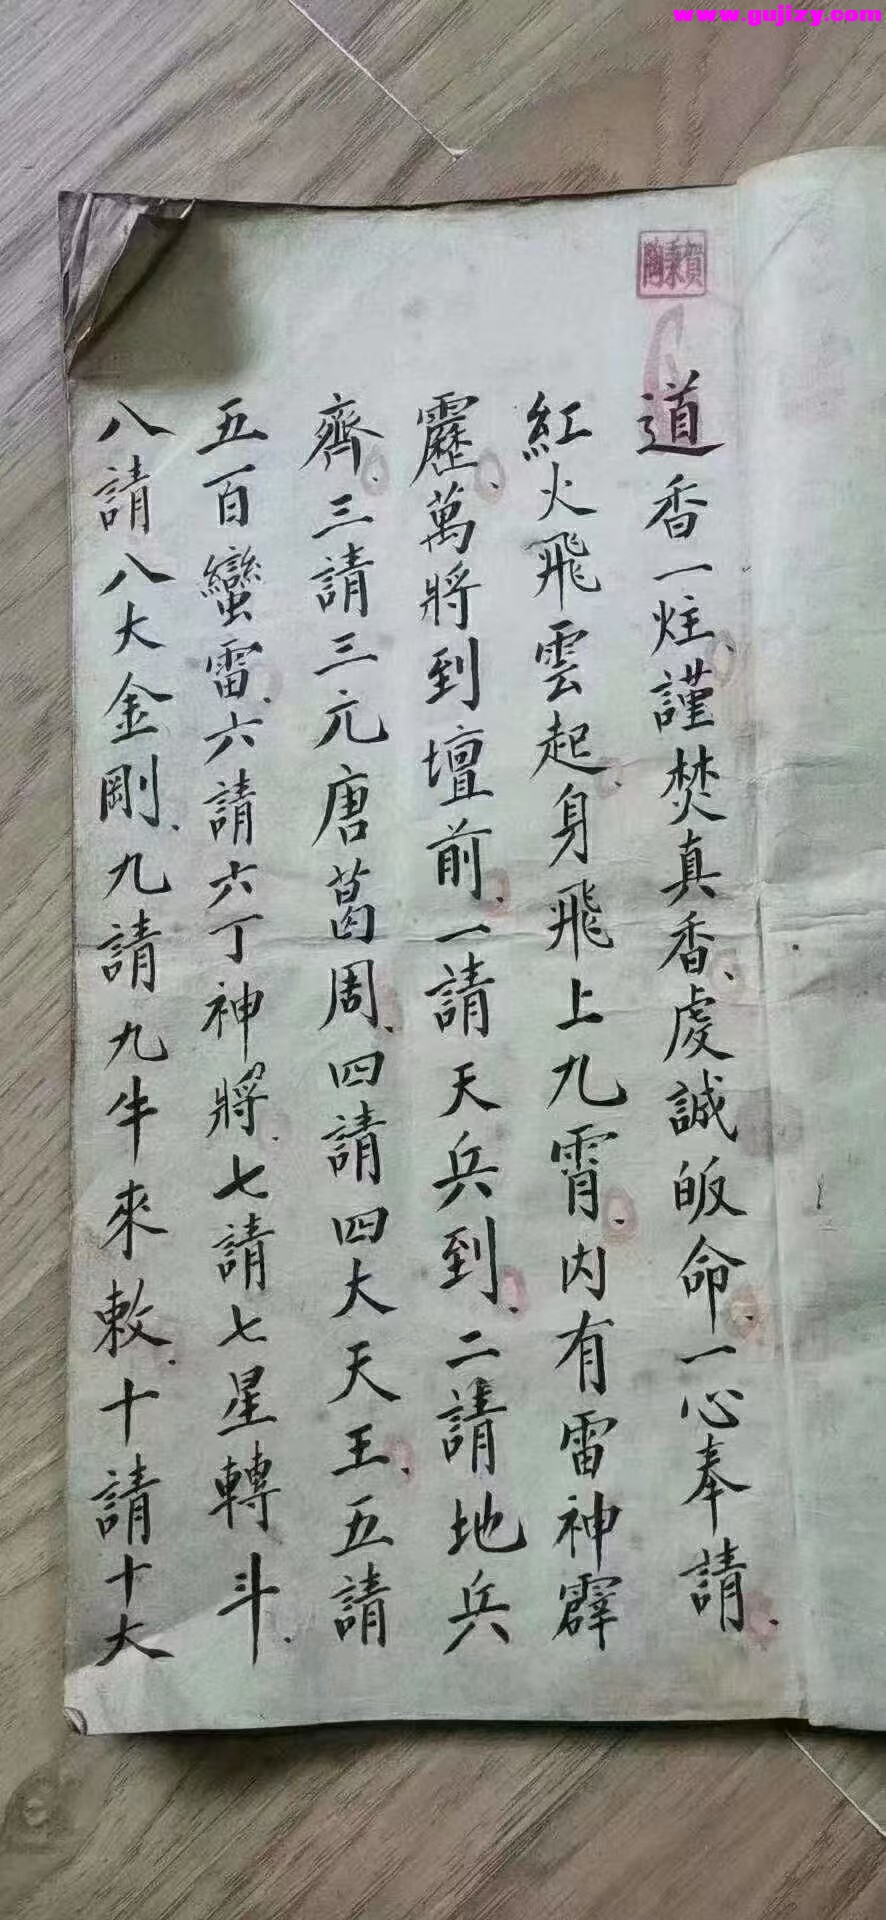 www.gujizy.com
賀秉陶
道香一炷謹焚真香虔誠皈命一心奉請
紅火飛雲起身飛上九霄内有雷神霹
靂萬將到壇前一請天兵到二請地兵
齊三請三元唐葛周四請四大天王五請
五百蠻雷六請六丁神將七請七星轉斗
八請八大金剛九請九牛來敕十請十大